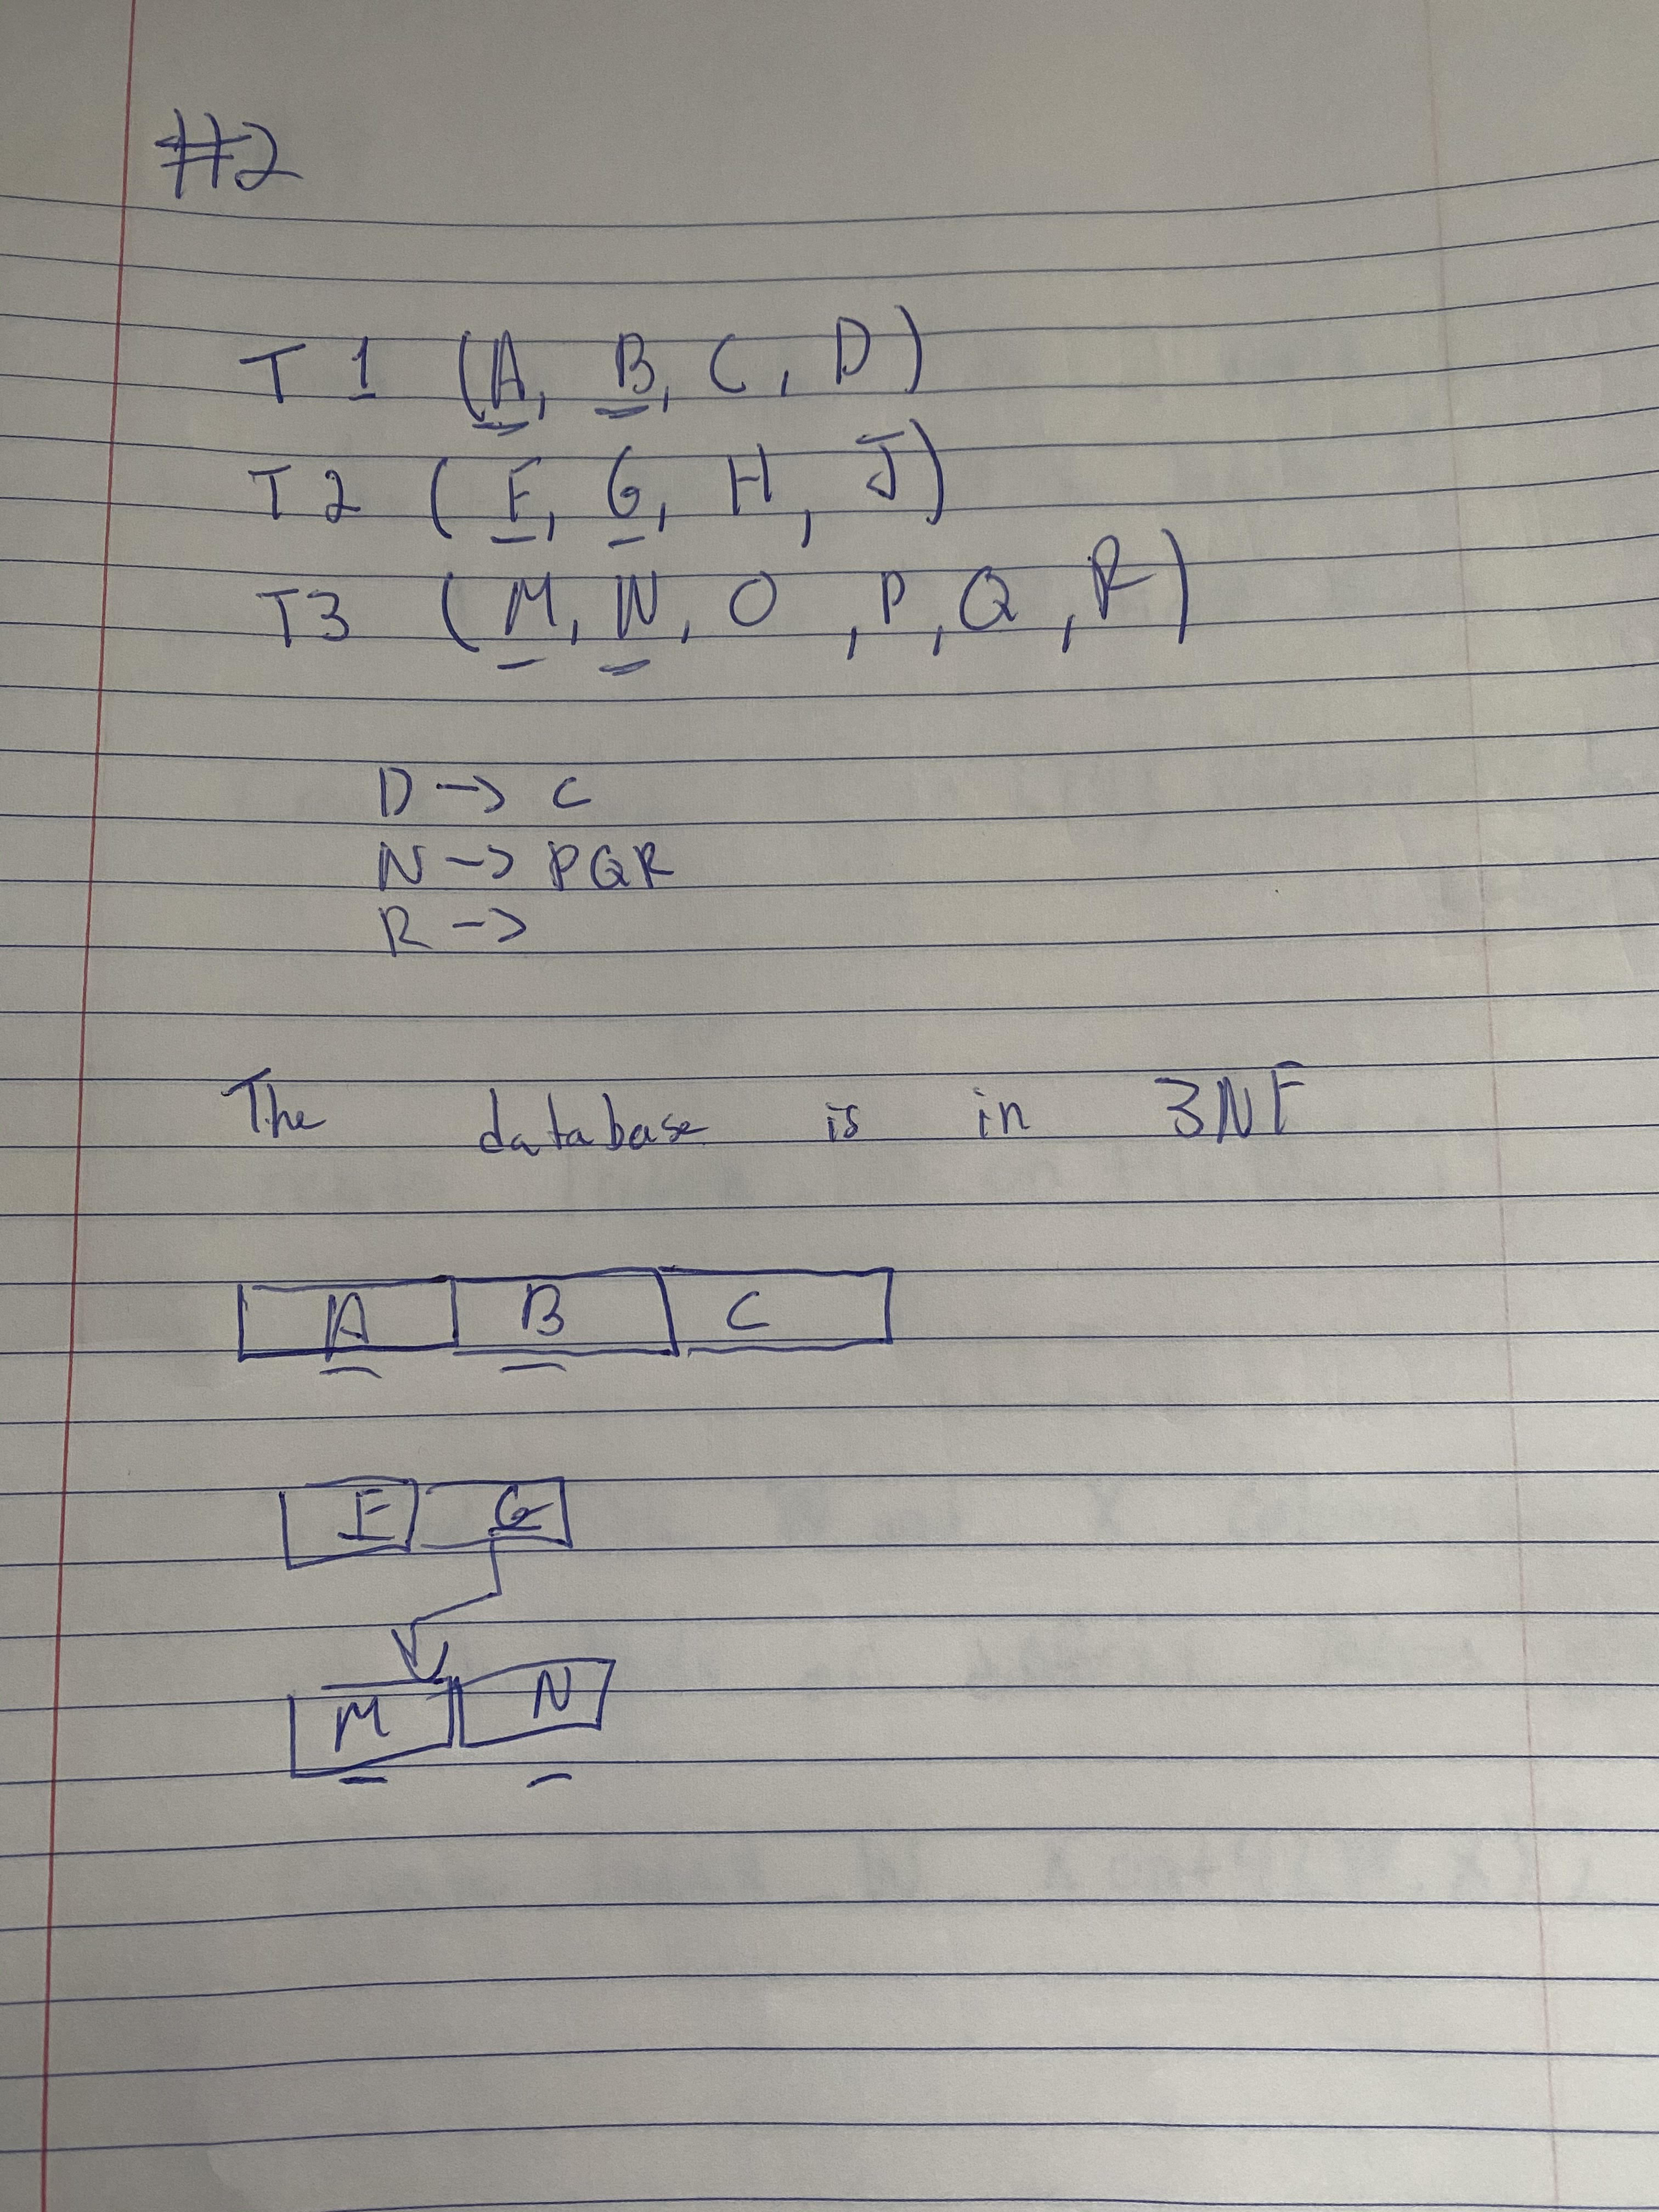 #2
T1 (A, B, C, D)
T2 (F, G, H, J)
T3 (M, N, O, P, Q, R)
D -> C
N -> PQR
R ->
The database is in 3NF
A B C
F G
M N